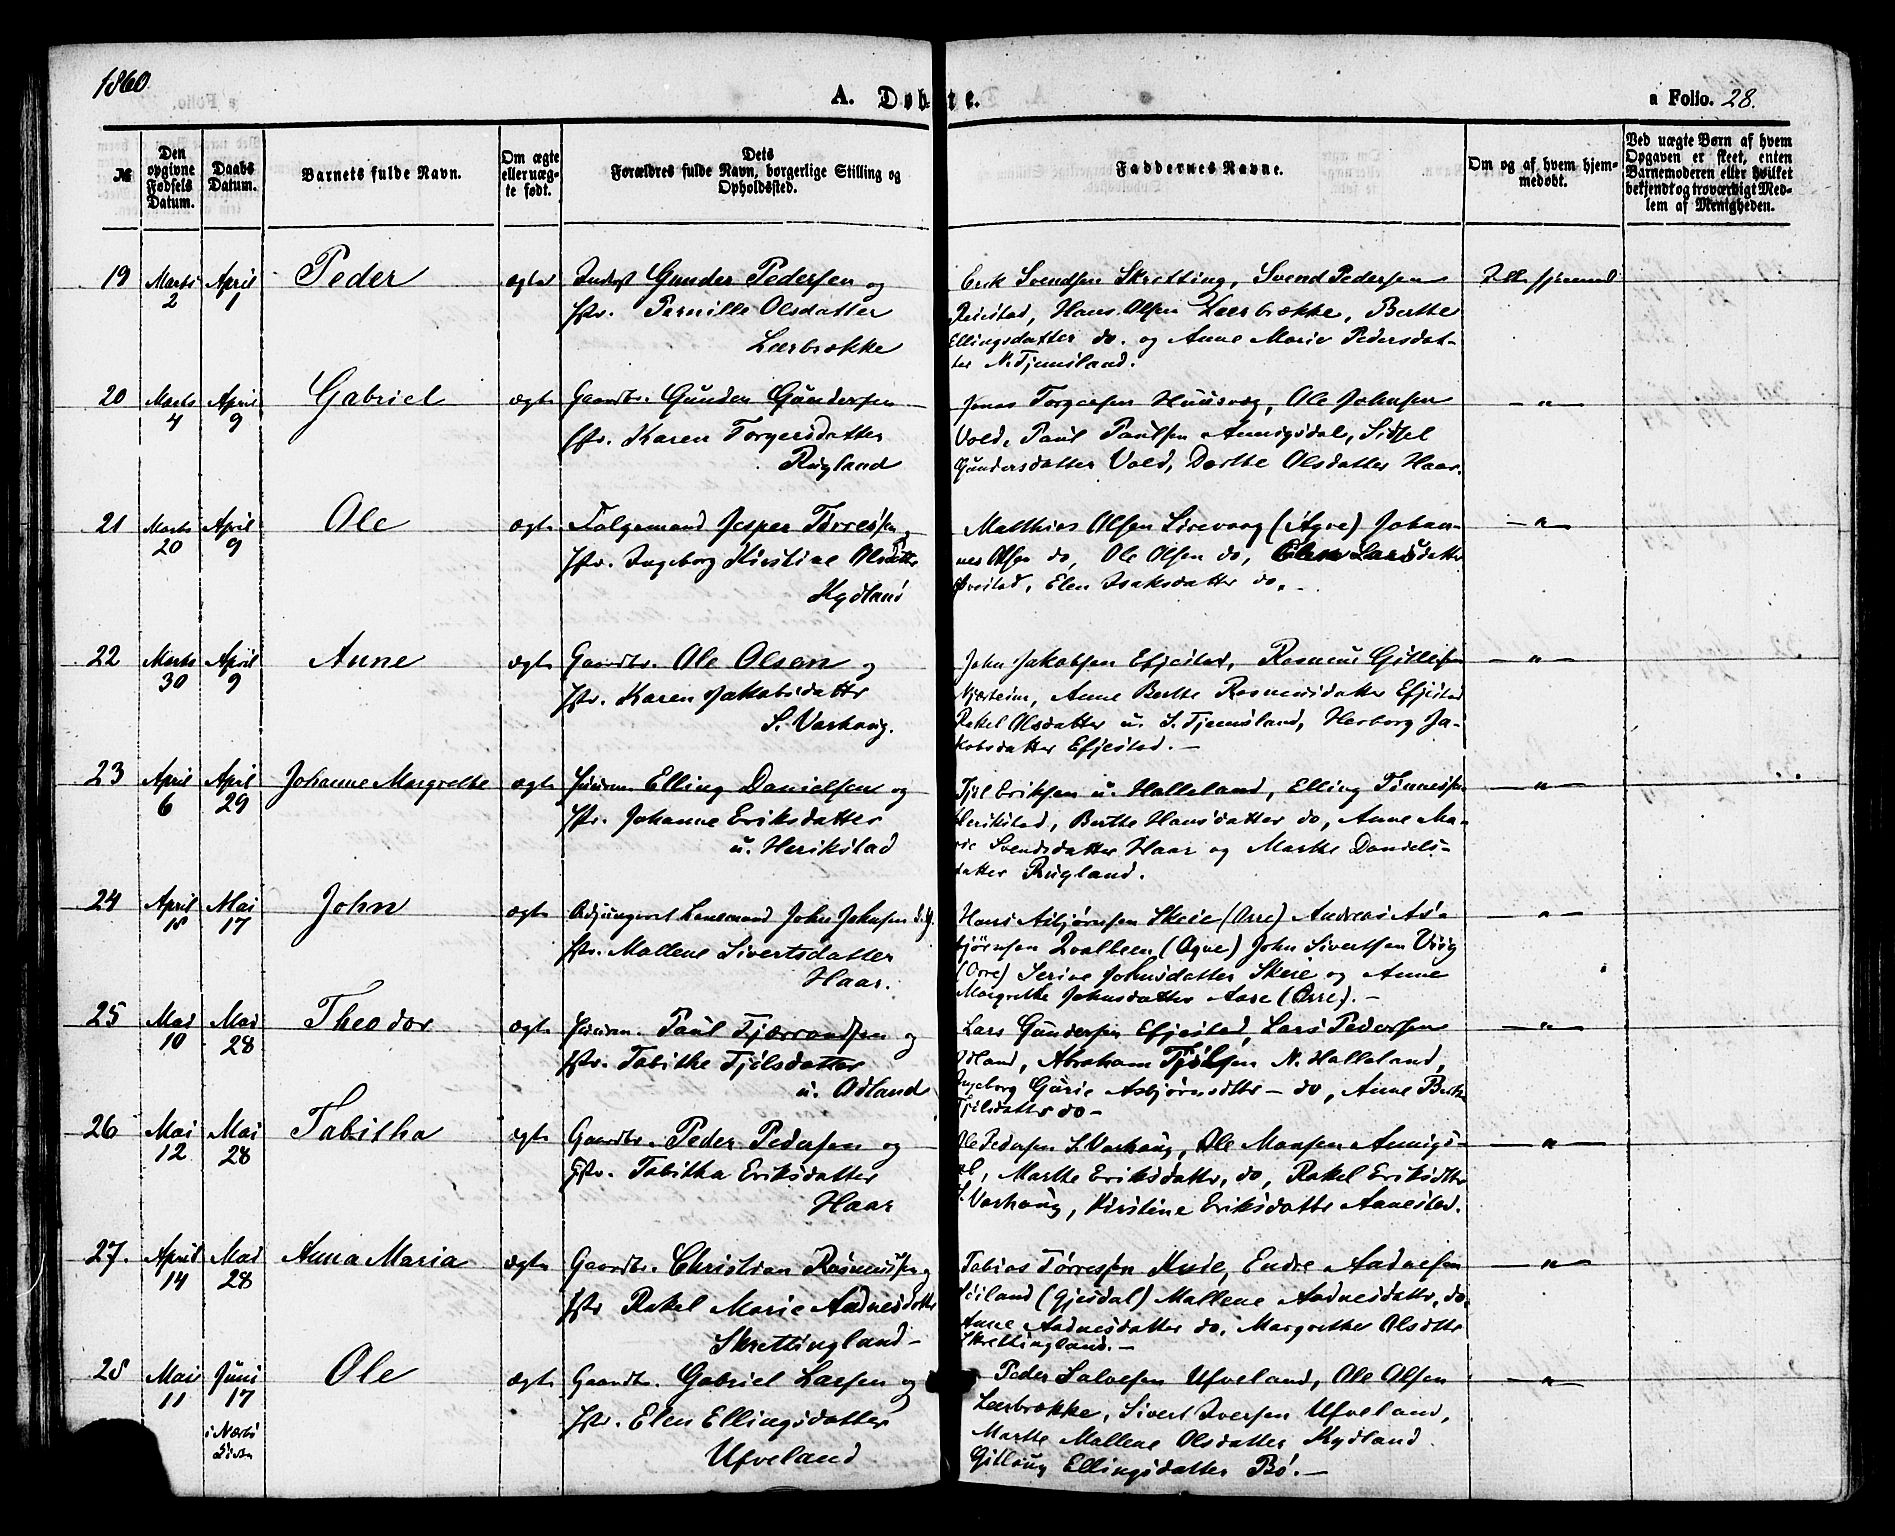 1860
A. Døbte.
a Folio. 28.
№
Den opgivne Fødsels Datum.
Daabs Datum.
Barnets fulde Navn.
Om ægte eller uægte født.
Dets Forældres fulde Navn, borgerlige Stilling og Opholdssted.
Faddernes Navne.
Om og af hvem hjemmedøbt.
Ved uægte Børn af hvem Opgaven er skeet, enten Barnemoderen eller hvilket bekjendt og troværdigt Medlem af Menigheden.
19 Marts 2 April 1 Peder ægte Inderst Gunder Pedersen og
Hstr. Pernille Olsdatter
Lærbrække
Erik Svendsen Skretting, Svend Pedersen
Reiestad, Hans Olsen Lærbrække, Berthe
Ellingsdatter do. og Anne Marie Pedersdat-
ter N. Tjemsland.
20 Marts 4 April 9 Gabriel ægte Gaardbr. Gunder Gundersen
Hstr. Karen Torgersdatter
Rugland
Jonas Torgersen Huusvæg, Ole Johnsen
Vold, Paul Paulsen Aunigsdal, Sidsel
Gundersdatter Vold, Dorthe Olsdatter Haar.
21 Marts 20 April 9 Ole ægte Folgemand Jesper Tørresen
Hstr. Ingeborg Kirstine Olsdatter
Kydland
Matthias Olsen Sirevaag (Ogne) Johan-
nes Olsen do, Ole Olsen do, Elen Larsdatter
Elen Isaksdatter do.
22 Marts 30 April 9 Anne ægte Gaardbr. Ole Olsen og
Hstr. Karen Jakobsdattr
S. Varhaug.
John Jakobsen Efjestad, Rasmus Gitlesen
Njærheim, Anne Berthe Rasmusdatter Efjestad
Rakel Olsdatter u. S. Tjemsland, Herborg Ja-
kobsdatter Efjestad.
23 April 6 April 29 Johanne Margrethe ægte Huusm. Elling Danielsen og
Hstr. Johanne Eriksdatter
u. Herikstad
Tjøl Eriksen u. Halleland, Elling Tønnesen
Herikstad, Berthe Hansdatter do, Anne Ma-
rie Svendsdatter Haar og Marthe Daniels-
datter Rugland.
24 April 18 Mai 17 John ægte Adjungeret Lensmand John Johnsen
Hstr. Mallene Sivertsdatter
Haar.
Hans Asbjørnsen Skeie (Orre) Andreas As-
bjørnsen Qvalbeen (Ogne) John Sivertsen Vig
(Orre) Serine Johnsdatter Skeie og Anne
Margrethe Johnsdatter Aase (Orre).
25 Mai 10 Mai 28 Theodor ægte Huusm. Paul Fjærrandsen og
Hstr. Tabithe Tjølsdatter
u. Odland
Lars Gundersen Efjestad, Lars Pedersen
Odland, Abraham Tjølsen N. Halleland,
Ingeborg Gurie Asbjørnsdttr do, Anne Berthe
Tjølsdatter do
26 Mai 12 Mai 28 Tabitha ægte Gaardbr. Peder Pedersen og
Hstr. Tabitha Eriksdatter
Haar
Ole Pedersen S. Varhaug, Ole Monsen Aunigs-
dal, Marthe Eriksdattr. do, Rakel Eriksdttr
S. Varhaug, Kirstine Eriksdattr Aanestad.
27. April 14 Mai 28 Anna Maria ægte Gaardbr. Christian Rasmussen og
Hstr Rakel Marie Aadnesdatter
Skrettingland
Tobias Tørresen Kvie, Endre Aadnesen
(Gjesdal) Mallene Aadnesdattr. do.
Anne Aadnesdatter do. Margrethe Olsdttr
Skrettingland.
28 Mai 11 Juni 17 i Nærbø Kirke Ole ægte Gaardbr. Gabriel Larsen og
Hstr. Elen Ellingsdatter
Ufveland
Peder Salvesen Ufveland, Ole Olsen
Lærbrække, Sivert Iversen Ufveland,
Marthe Mallene Olsdatter Kydland
Gitlaug Ellingsdatter Bø.